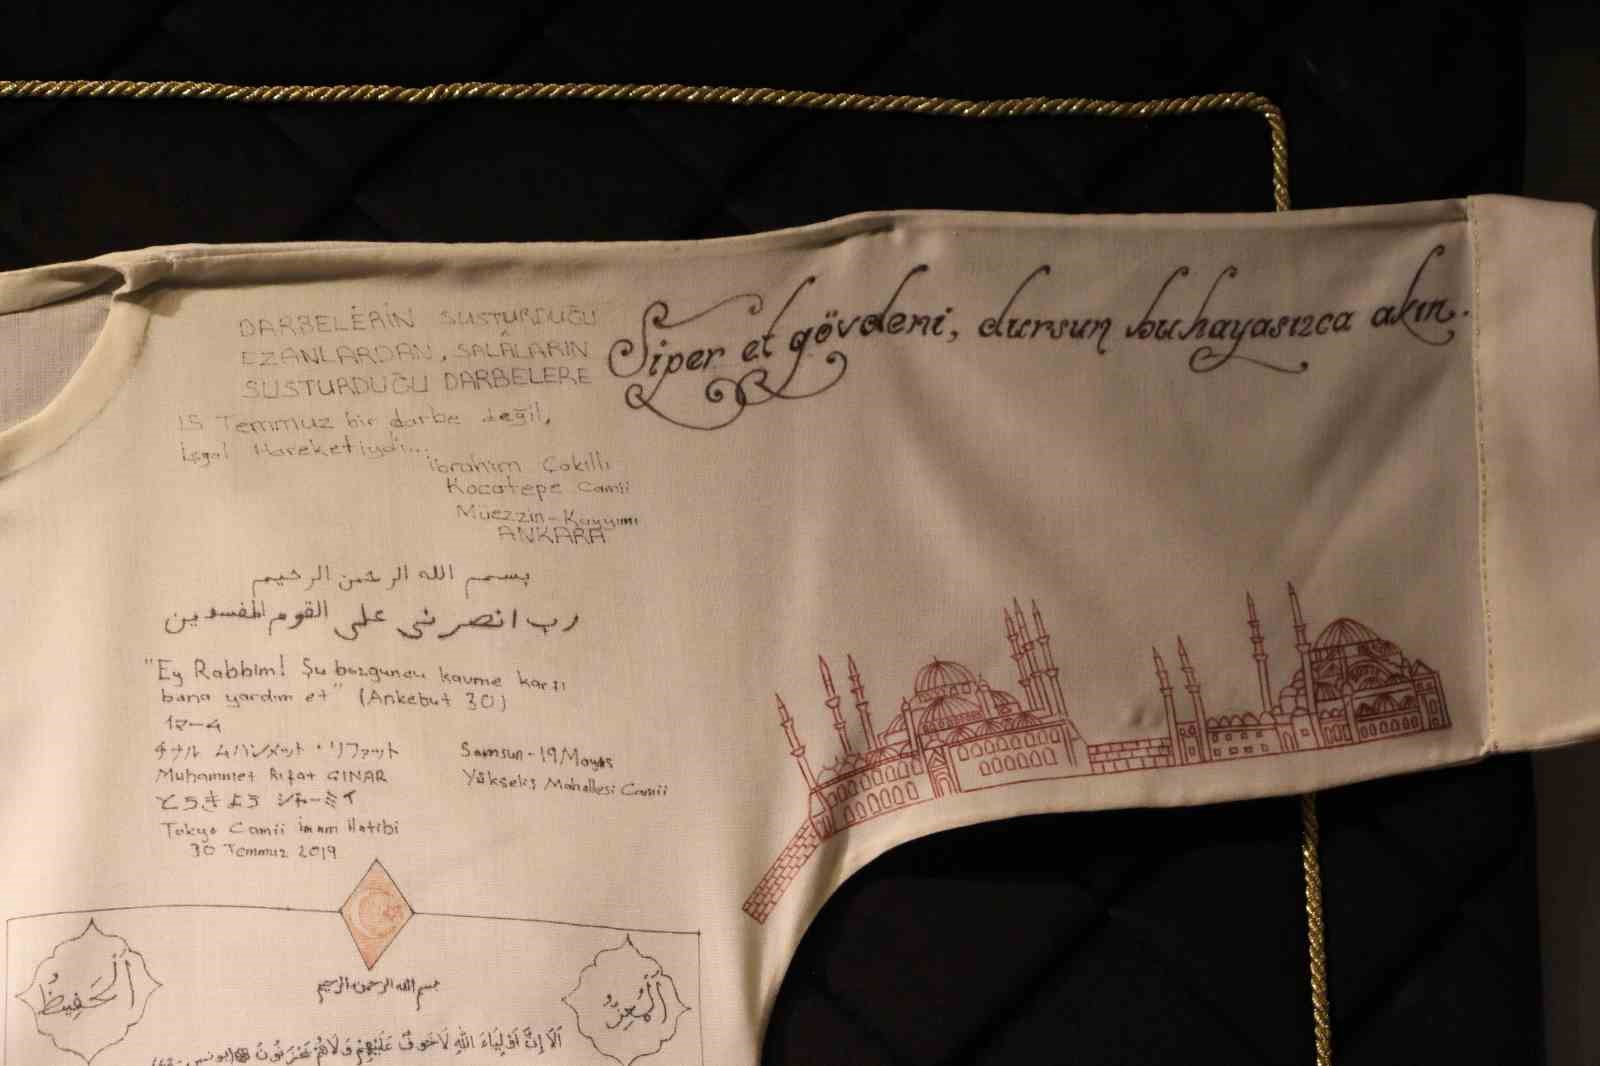 DARBELERİN SUSTURDUĞU
EZANLARDAN, SALÂLARIN
SUSTURDUĞU DARBELERE
15 Temmuz bir darbe değil,
İşgal Hareketiydi...
İbrahim Çakıllı
Kocatepe Camii
Müezzin-Kayyımı
ANKARA
Siper et gövdeni, dursun bu hayasızca akın.
بسم الله الرحمن الرحيم
رب انصرني على القوم المفسدين
"Ey Rabbim! Şu bozguncu kavme karşı
bana yardım et" (Ankebut 30)
イマーム
チナル ムハンメット・リファット
Muhammet Rıfat ÇINAR
とうきよう ジャーミイ
Tokyo Camii İmam Hatibi
30 Temmuz 2019
Samsun-19 Mayıs
Yükseliş Mahallesi Camii
اَلْحَفِيظُ
بسم الله الرحمن الرحيم
اَلْمُعِزُّ
اَلَا اِنَّ اَوْلِيَاءَ اللهِ لَا خَوْفٌ عَلَيْهِمْ وَلَا هُمْ يَحْزَنُونَ